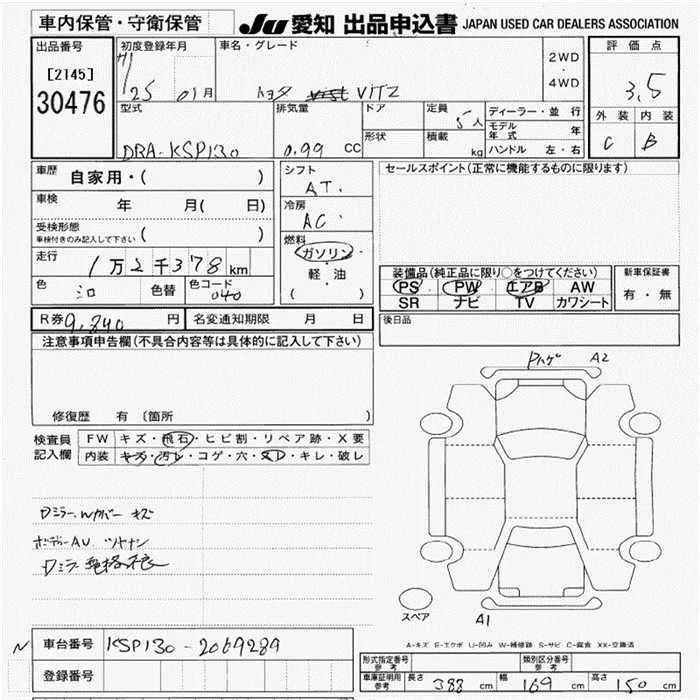 車内保管・守衛保管 JU 愛知 出品申込書 JAPAN USED CAR DEALERS ASSOCIATION
出品番号 初度登録年月 車名・グレード 2WD ・ 4WD 評価点
[2145] H 25 01月 トヨタ VITZ 3.5
30476 型式 排気量 ドア 定員 5人 ディーラー・並行 外装 内装
DBA-KSP130 0.99 CC 形状 積載 kg モデル年式 年 C B
ハンドル 左・右
車歴 自家用・( ) シフト AT. セールスポイント(正常に機能するものに限ります)
車検 年 月( 日) 冷房 AC
受検形態 車検付きのみ記入して下さい ( ) 燃料 ガソリン・軽油 ( )
走行 1万2千378km 装備品(純正品に限り○をつけてください) 新車保証書
色 シロ 色替 色コード 040 PS PW エアB AW 有・無
SR ナビ TV カワシート
R券 9,840 円 名変通知期限 月 日 後日品
注意事項申告欄(不具合内容等は具体的に記入して下さい)
Pハゲ A2
修復歴 有 〔箇所
検査員記入欄 FW キズ・飛石・ヒビ割・リペア跡・X要
内装 キズ・汚レ・コゲ・穴・スレ・キレ・破レ
Dミラー、Wカバー キズ
ボデーAU ツヤナシ
Dミラ
スペア A1
A-キズ E-エクボ U-凹み W-補修跡 S-サビ C-腐食 XX-交換済
N 車台番号 KSP130-2069289
登録番号
形式指定番号 参考 類別区分番号 参考
車庫証明用 参考 長さ 388 cm 幅 169 cm 高さ 150 cm